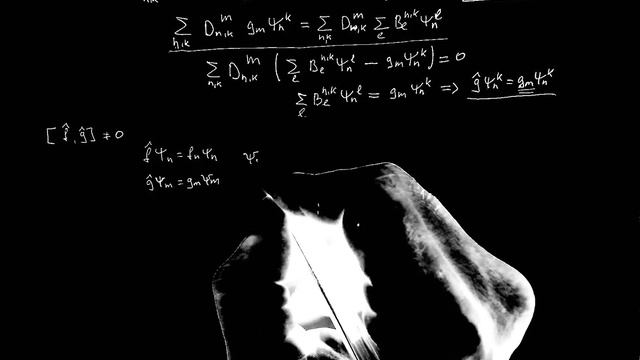 ∑_{n,k} D_{n,k}^m g_m Ψ_n^k = ∑_{n,k} D_{n,k}^m ∑_ℓ B_ℓ^{n,k} Ψ_n^ℓ
∑_{n,k} D_{n,k}^m ( ∑_ℓ B_ℓ^{n,k} Ψ_n^ℓ − g_m Ψ_n^k ) = 0
∑_ℓ B_ℓ^{n,k} Ψ_n^ℓ = g_m Ψ_n^k => ĝ Ψ_n^k = g_m Ψ_n^k
[ f̂, ĝ ] ≠ 0
f̂ Ψ_n = f_n Ψ_n Ψ.
ĝ Ψ_m = g_m Ψ_m